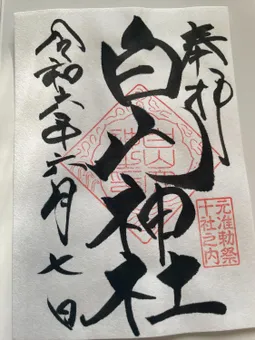 奉拝
白山神社
元准勅祭
十社之内
令和六年六月七日